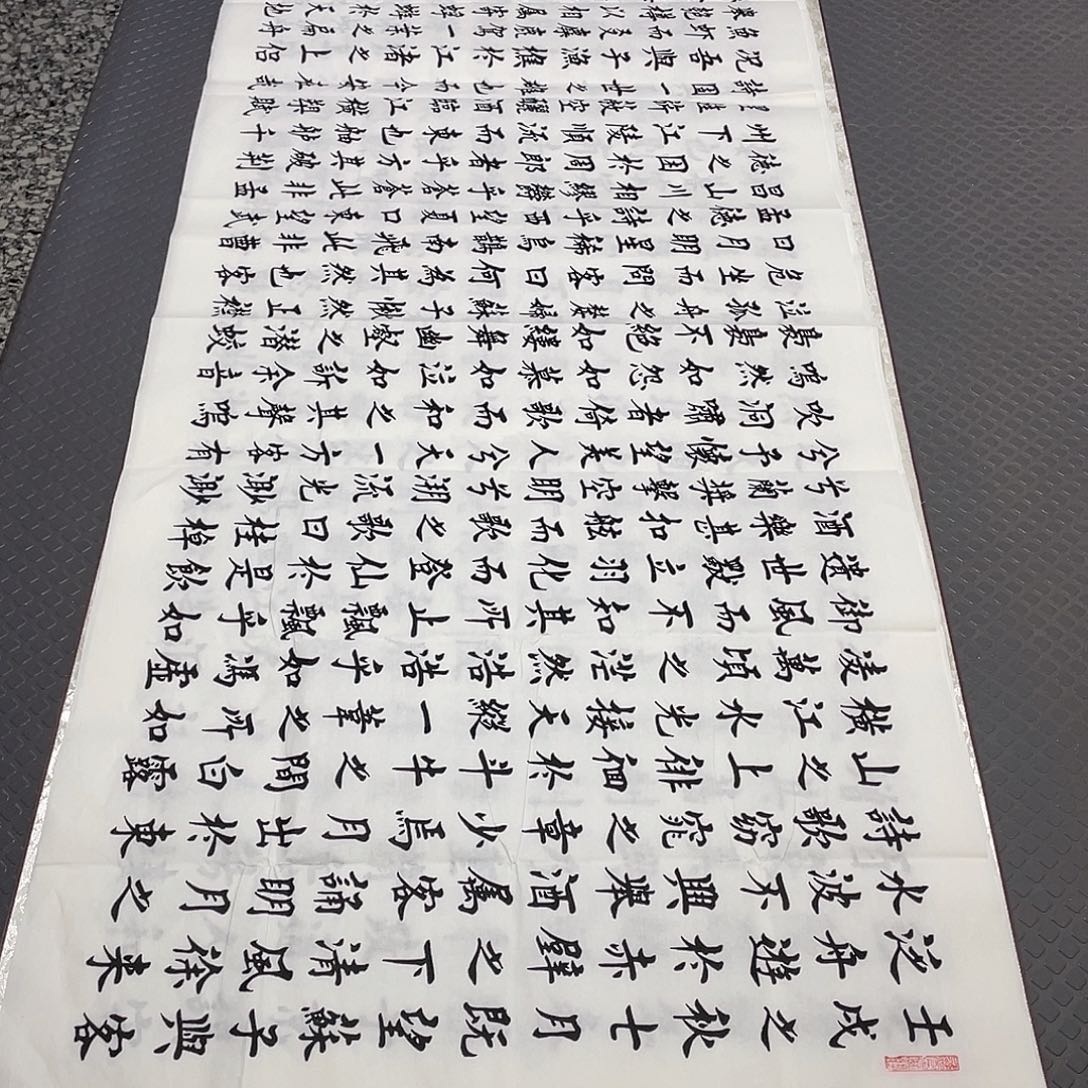 壬戌之秋七月既望蘇子與客
泛舟遊於赤壁之下清風徐來
水波不興舉酒屬客誦明月之
詩歌窈窕之章少焉月出於東
山之上徘徊於斗牛之間白露
橫江水光接天縱一葦之所如
凌萬頃之茫然浩浩乎如馮虛
御風而不知其所止飄飄乎如
遺世獨立羽化而登仙於是飲
酒樂甚扣舷而歌之歌曰桂棹
兮蘭槳擊空明兮溯流光渺渺
兮予懷望美人兮天一方客有
吹洞簫者倚歌而和之其聲嗚
嗚然如怨如慕如泣如訴余音
裊裊不絕如縷舞幽壑之潛蛟
泣孤舟之嫠婦蘇子愀然正襟
危坐而問客曰何為其然也客
曰月明星稀烏鵲南飛此非曹
孟德之詩乎西望夏口東望武
昌山川相繆鬱乎蒼蒼此非孟
德之困於周郎者乎方其破荆
州下江陵順流而東也舳艫千
里旌旗蔽空釃酒臨江橫槊賦
詩固一世之雄也而今安在哉
況吾與子漁樵於江渚之上侶
魚虾而友麋鹿駕一葉之扁舟